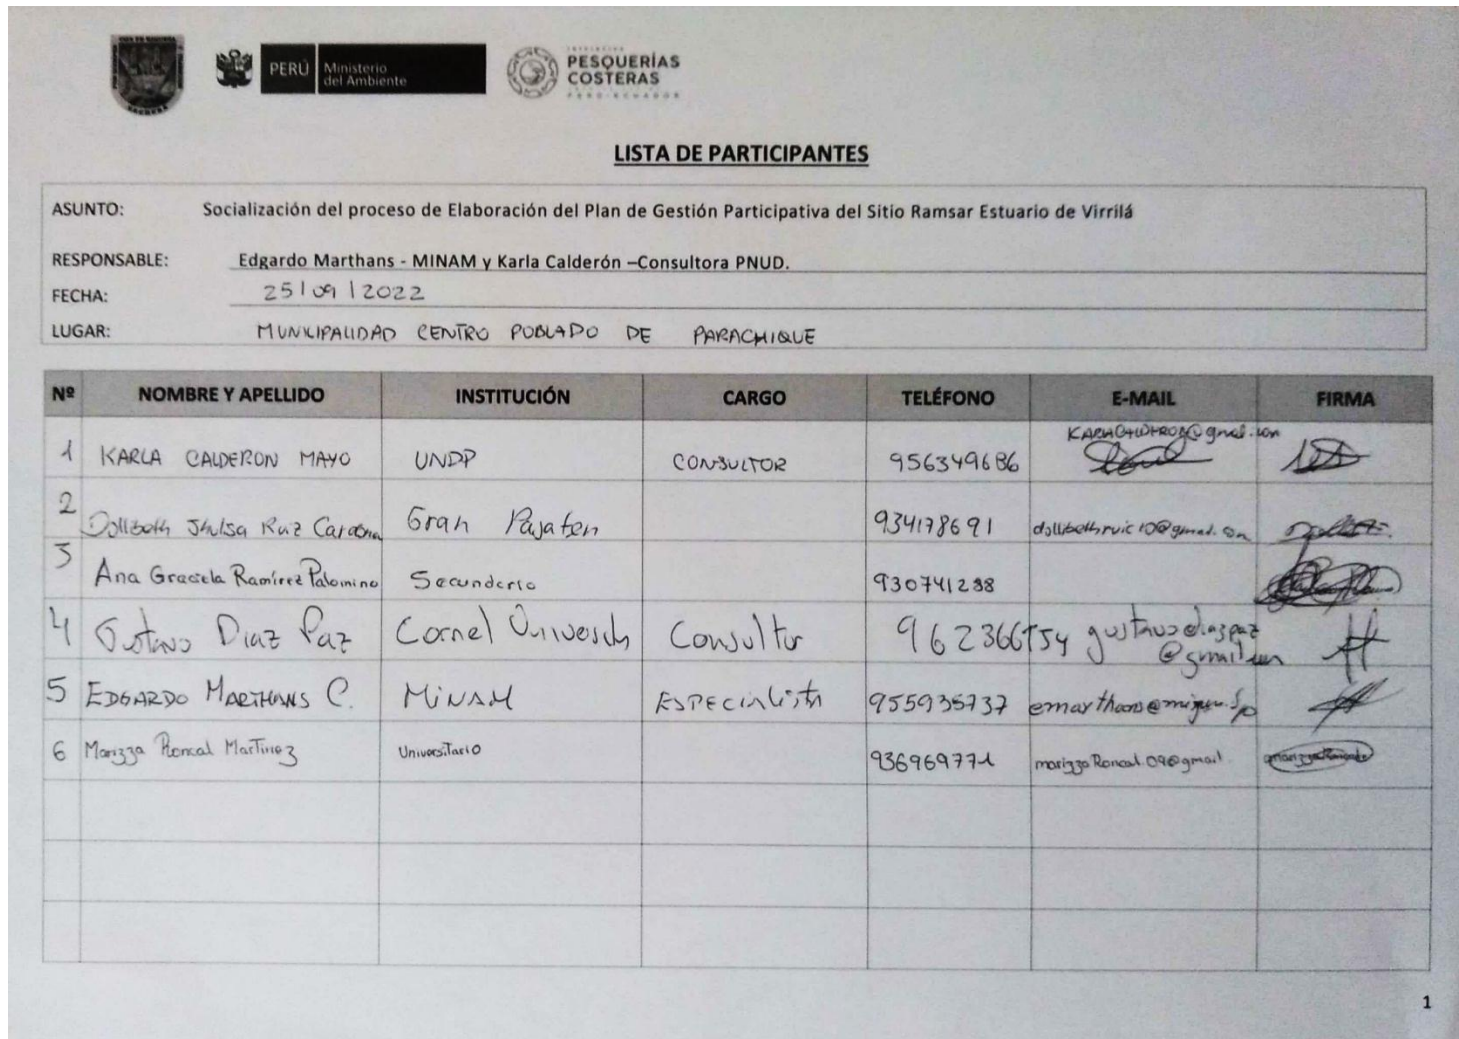 PERÚ Ministerio
del Ambiente
PESQUERÍAS
COSTERAS
PERÚ-ECUADOR
LISTA DE PARTICIPANTES
ASUNTO: Socialización del proceso de Elaboración del Plan de Gestión Participativa del Sitio Ramsar Estuario de Virrilá
RESPONSABLE: Edgardo Marthans - MINAM y Karla Calderón –Consultora PNUD.
FECHA: 25/09/2022
LUGAR: MUNICIPALIDAD CENTRO POBLADO DE PARACHIQUE
Nº NOMBRE Y APELLIDO INSTITUCIÓN CARGO TELÉFONO E-MAIL FIRMA
1 KARLA CALDERON MAYO UNDP CONSULTOR 956349686
2 Ruiz Gran Pajaten 934178691
3 Ana Graciela Ramírez Palomino Secundario 930741288
4 Gustavo Diaz Paz Cornel Consultor gustavodiazpaz
5 EDGARDO MARTHANS C. MINAM ESPECIALISTA 955935737
6 Marizza Roncal Martinez Universitario 936969771 marizzaRoncal.09@gmail.
1